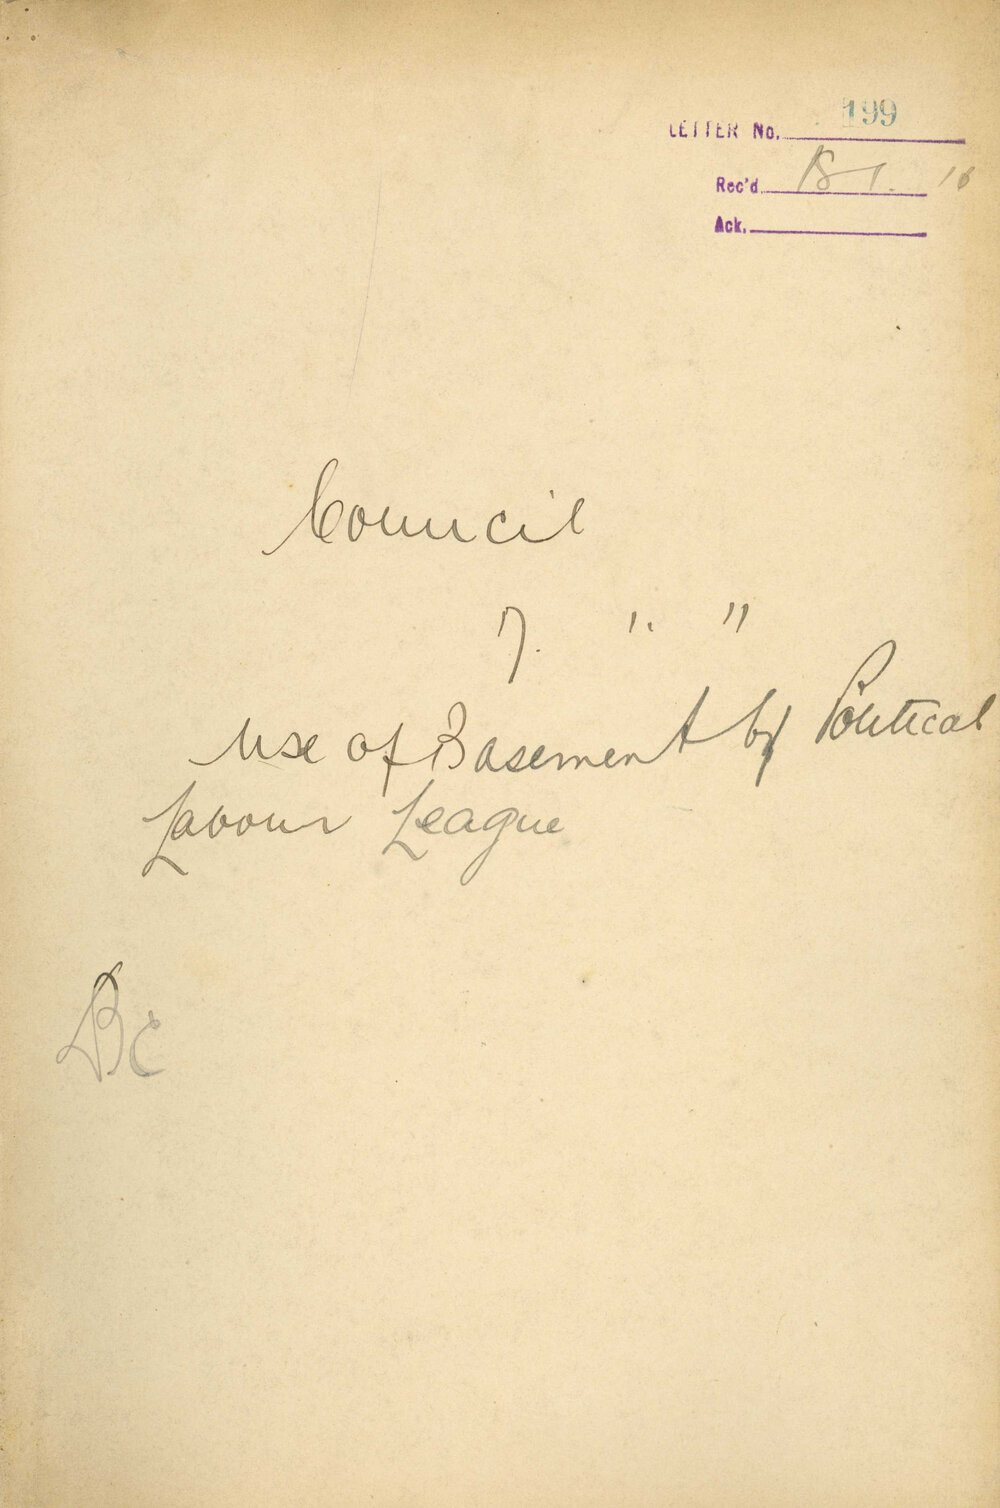 LETTER No. 199
Rec'd 18 1. 16
Ack.
Council
7. " "
Use of Basement by Political
Labour League
BC